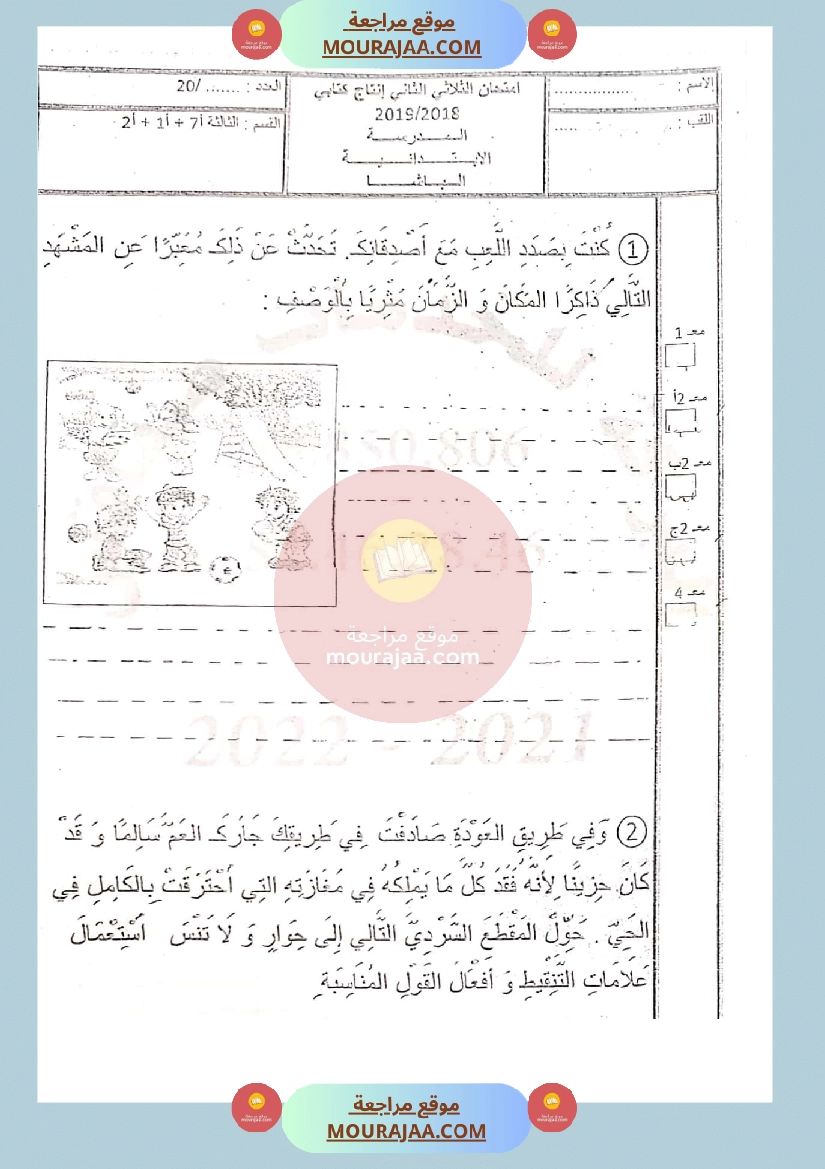 موقع مراجعة
MOURAJAA.COM
الاسم : ................
اللقب : ......
امتحان الثلاثي الثاني إنتاج كتابي
2019/2018
المدرسة
الابتدائية
الباشا
العدد : ....... /20
القسم : الثالثة أ7 + أ1 + أ2
① كُنْتَ بِصَدَدِ اللَّعِبِ مَعَ أَصْدِقَائِكَ. تَحَدَّثْ عَنْ ذَلِكَ مُعَبِّرًا عَنِ المَشْهَدِ
التَّالِي ذَاكِرًا المَكَانَ وَ الزَّمَانَ مُثْرِيًا بِالْوَصْفِ :
معـ 1
معـ 2أ
معـ 2ب
معـ 2ج
معـ 4
850.806
موقع مراجعة
mourajaa.com
2022 - 2021
② وَفِي طَرِيقِ العَوْدَةِ صَادَفْتَ فِي طَرِيقِكَ جَارَكَ العَمَّ سَالِمًا وَ قَدْ
كَانَ حَزِينًا لِأَنَّهُ فَقَدَ كُلَّ مَا يَمْلِكُهُ فِي مَغَازَتِهِ التِي اُحْتَرَقَتْ بِالكَامِلِ فِي
الحَيِّ . حَوِّلْ المَقْطَعَ السَّرْدِيَّ التَّالِي إِلَى حِوَارٍ وَ لَا تَنْسَ اُسْتِعْمَالَ
عَلَامَاتِ التَّنْقِيطِ وَ أَفْعَالَ القَوْلِ المُنَاسِبَةِ
موقع مراجعة
MOURAJAA.COM